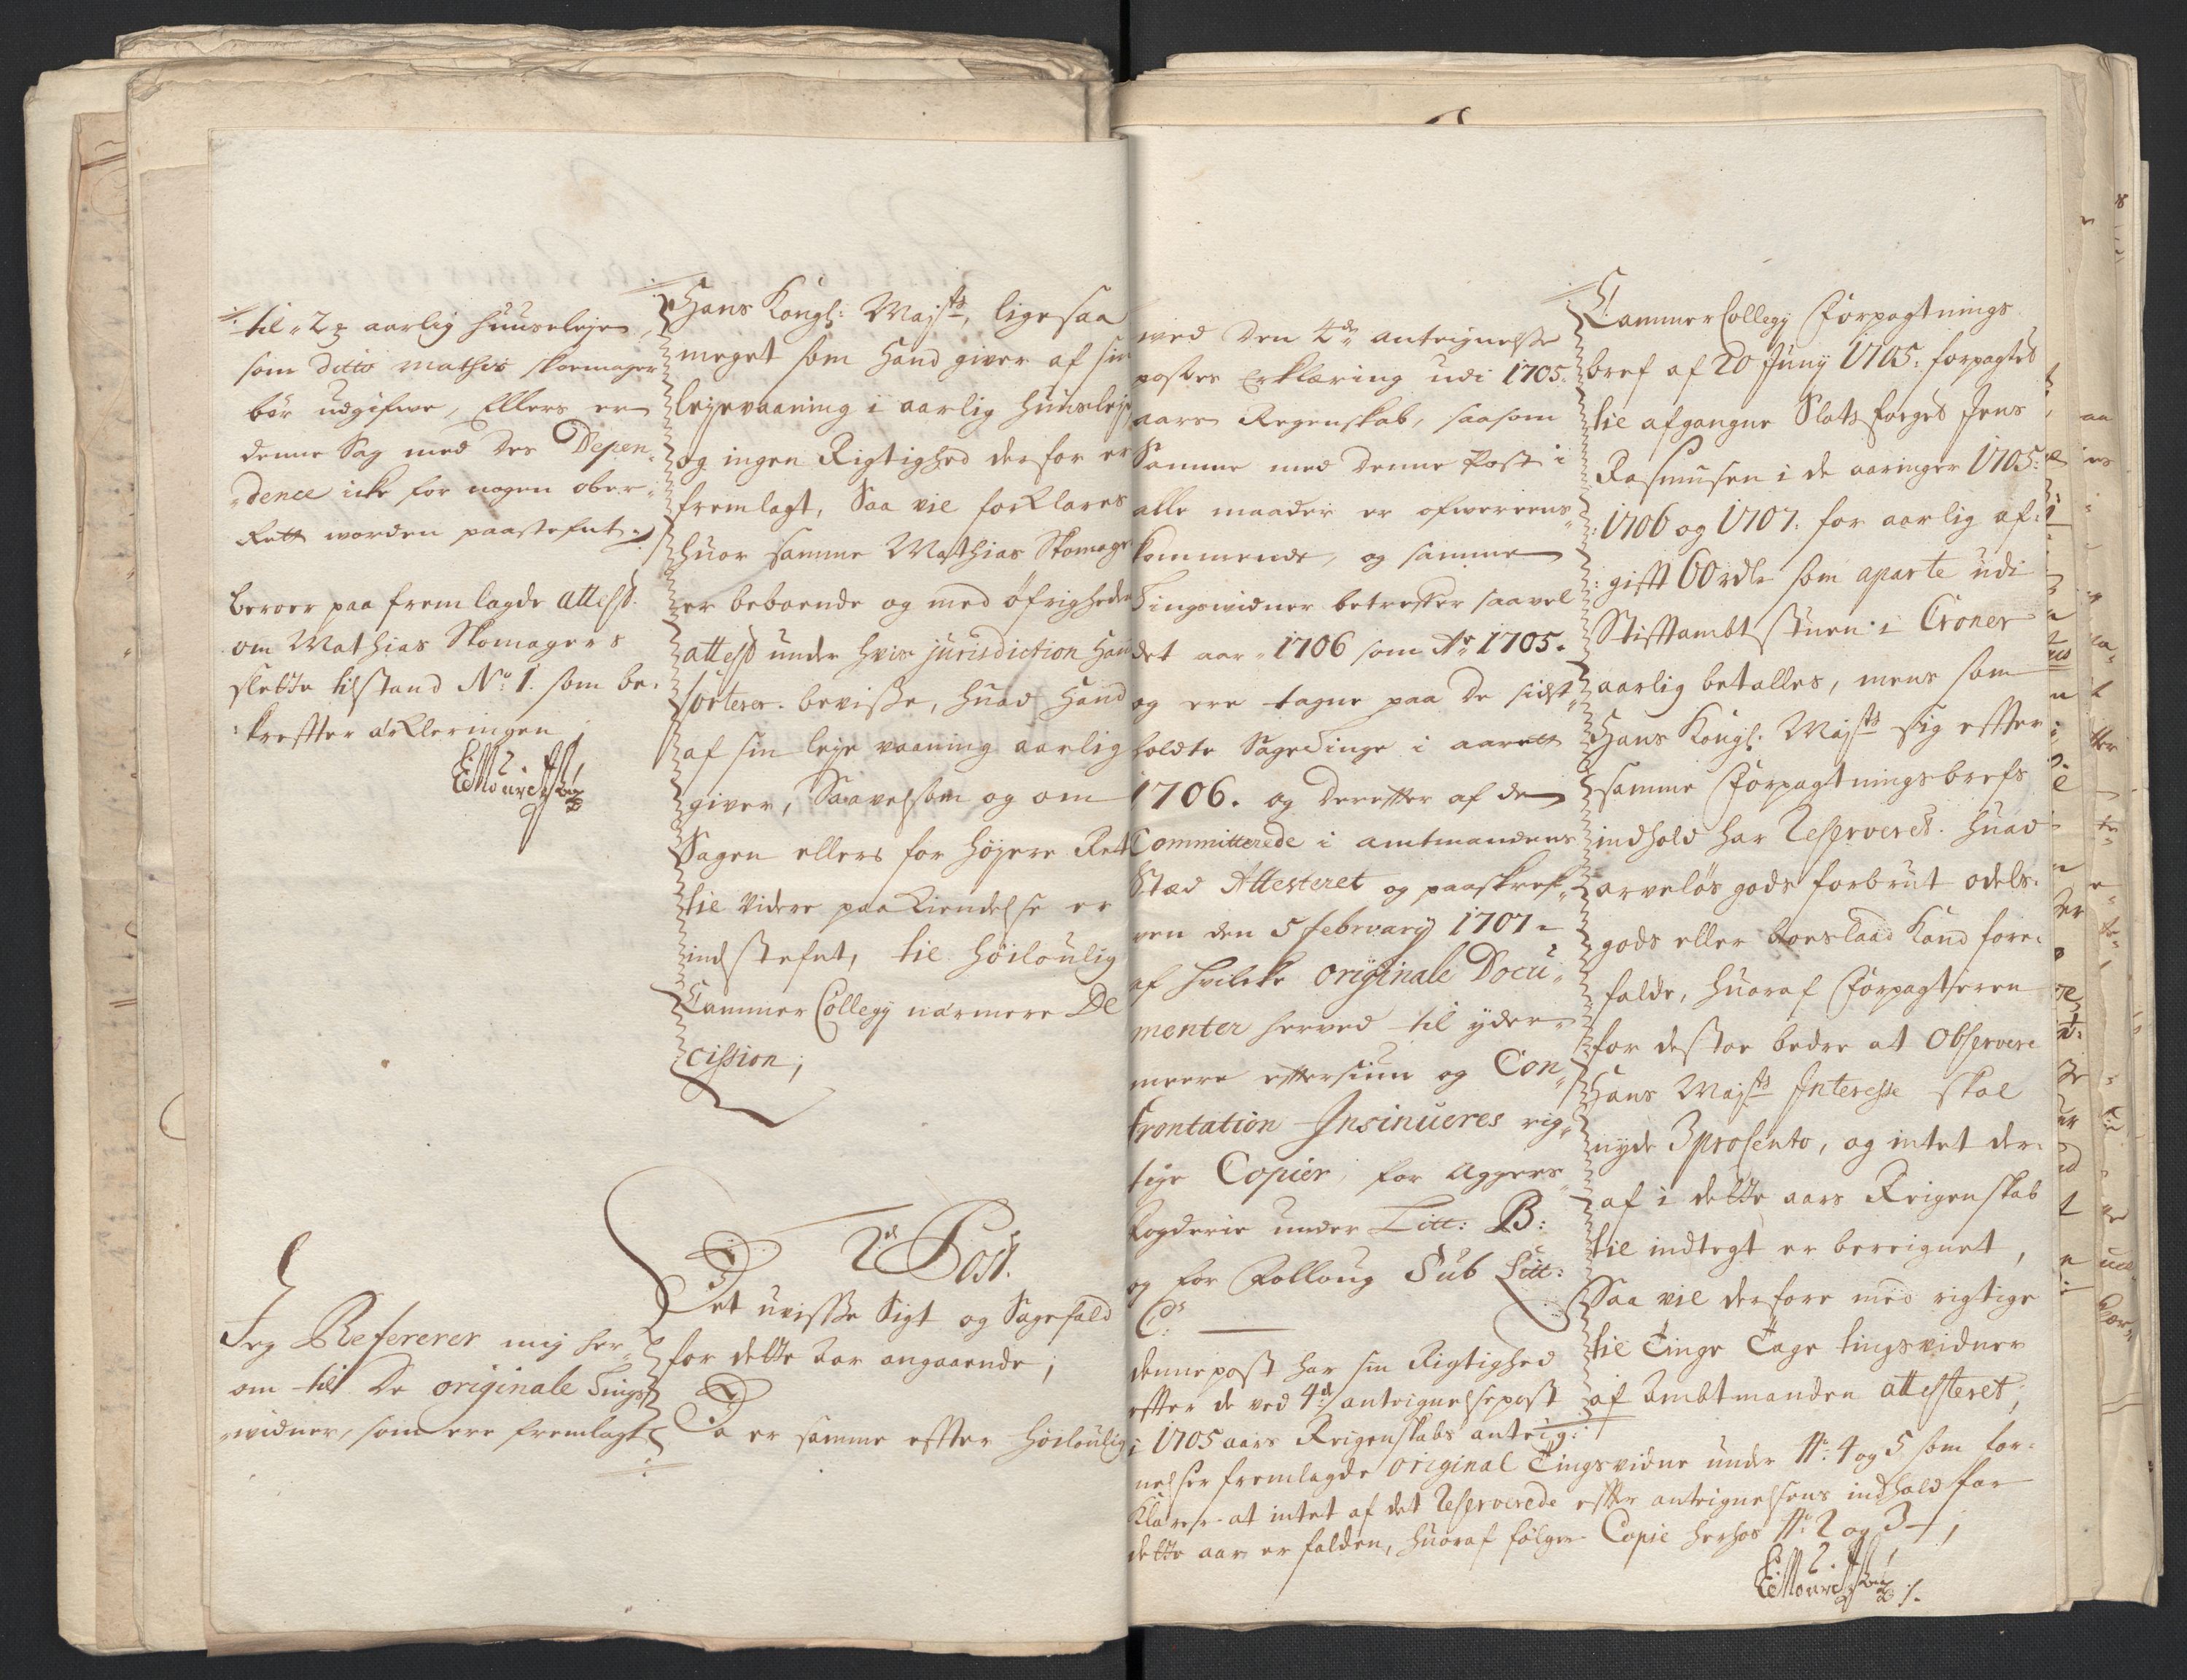 til 2 aarlig huusleje
som ditto Mathis skoemager
bør udgifwe, Ellers er
denne Sag med des Depen-
dence icke for nogen ober-
Rett worden paastefnt.
beroer paa fremlagde attest
om Mathias Skomagers
slette tilstand No: 1. som be-
krefter ærkleringen
Hans Kongl: Majts, lige saa
meget som hand giver af sin
leyevaaning i aarlig huusleje
og ingen Rigtighed derfor er
fremlagt, Saa vil forklares
huor samme Mathias Skomager
er boboende og med øfrigheds
attest under hvis jurisdiction Hand
sorterer bevisse, huad Hand
af sin leje vaaning aarlig
giver, Saavelsom og om
Sagen ellers for højere Ret
til videre paakiendelse er
indstefnt, til høiloulig
Cammer Collegy nærmere De
cission;
2d Post.
Det uvisse Sigt og Sagefald
for dette aar angaaende;
Da er samme effter høiloulig
Jeg Refererer mig her-
om til de originale Tings-
widner, som ere fremlagt
wed den 4de antegnelse
postes Erklæring udi 1705.
aars Regenskab, saasom
Samme med denne Post i
alle maader er ofwereens-
kommende, og samme
Tingswidner betreffer saavel
det aar 1706 som Ao 1705.
og ere tagne paa de sidst
holdte Sageting i aaret
1706. og derefter af de
Committerede i amtmandens
Stæd Attesteret og paaskref-
ven den 5 february 1707
af hvilke originale Docu-
menter herved til yder-
meere eftersiun og Con-
frontation Insinueres rig-
tige Copier, for Aggers
fogderie under Litt: B:
og for Folloug Sub Litt:
C:
denne post har sin Rigtighed
efter de ved 4de antegnelsepost
i 1705 aars Reigenskabs anteig-
nelser fremlagde original Tingsvidne under No: 4 og 5 som for-
klarer at intet af det Reserverede efter anteignelsens indhold for
dette aar er falden, huoraf følger Copie herhos No: 2 og 3
Cammer Collegy Forpagtnings
bref af 20 Juny 1705. forpagtet
til afgangne Slots foged Jens
Rasmusen i de aaringer 1705
1706 og 1707. for aarlig af-
gifft 60 rdl som aparte udi
Stifftambtstuen i Croner
aarlig betalles, mens som
Hans Kongl. Majts sig effter
samme Forpagtningsbrefs
indhold har Reserveret. huad
arveløs gods forbrut odels-
gods eller boeslaad kand fore-
falde, huoraf Forpagteren
for desto bedre at Observere
Hans Majts Interesse skal
nyde 3 prosento, og intet der-
af i dette aars Reigenskab
til indtegt er bereignet,
Saa vil derfore med rigtige
til Tinge Tagne tingsvidner
af Ambtmanden attesteret;